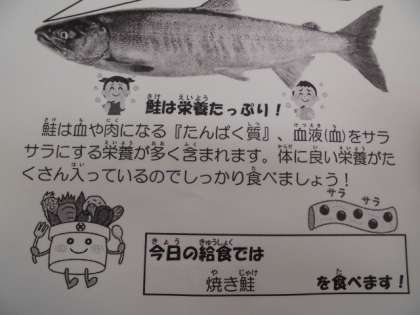 鮭は栄養たっぷり！
鮭は血や肉になる『たんぱく質』、血液(血)をサラ
サラにする栄養が多く含まれます。体に良い栄養がた
くさん入っているのでしっかり食べましょう！
サラ サラ
今日の給食では
焼き鮭 を食べます！